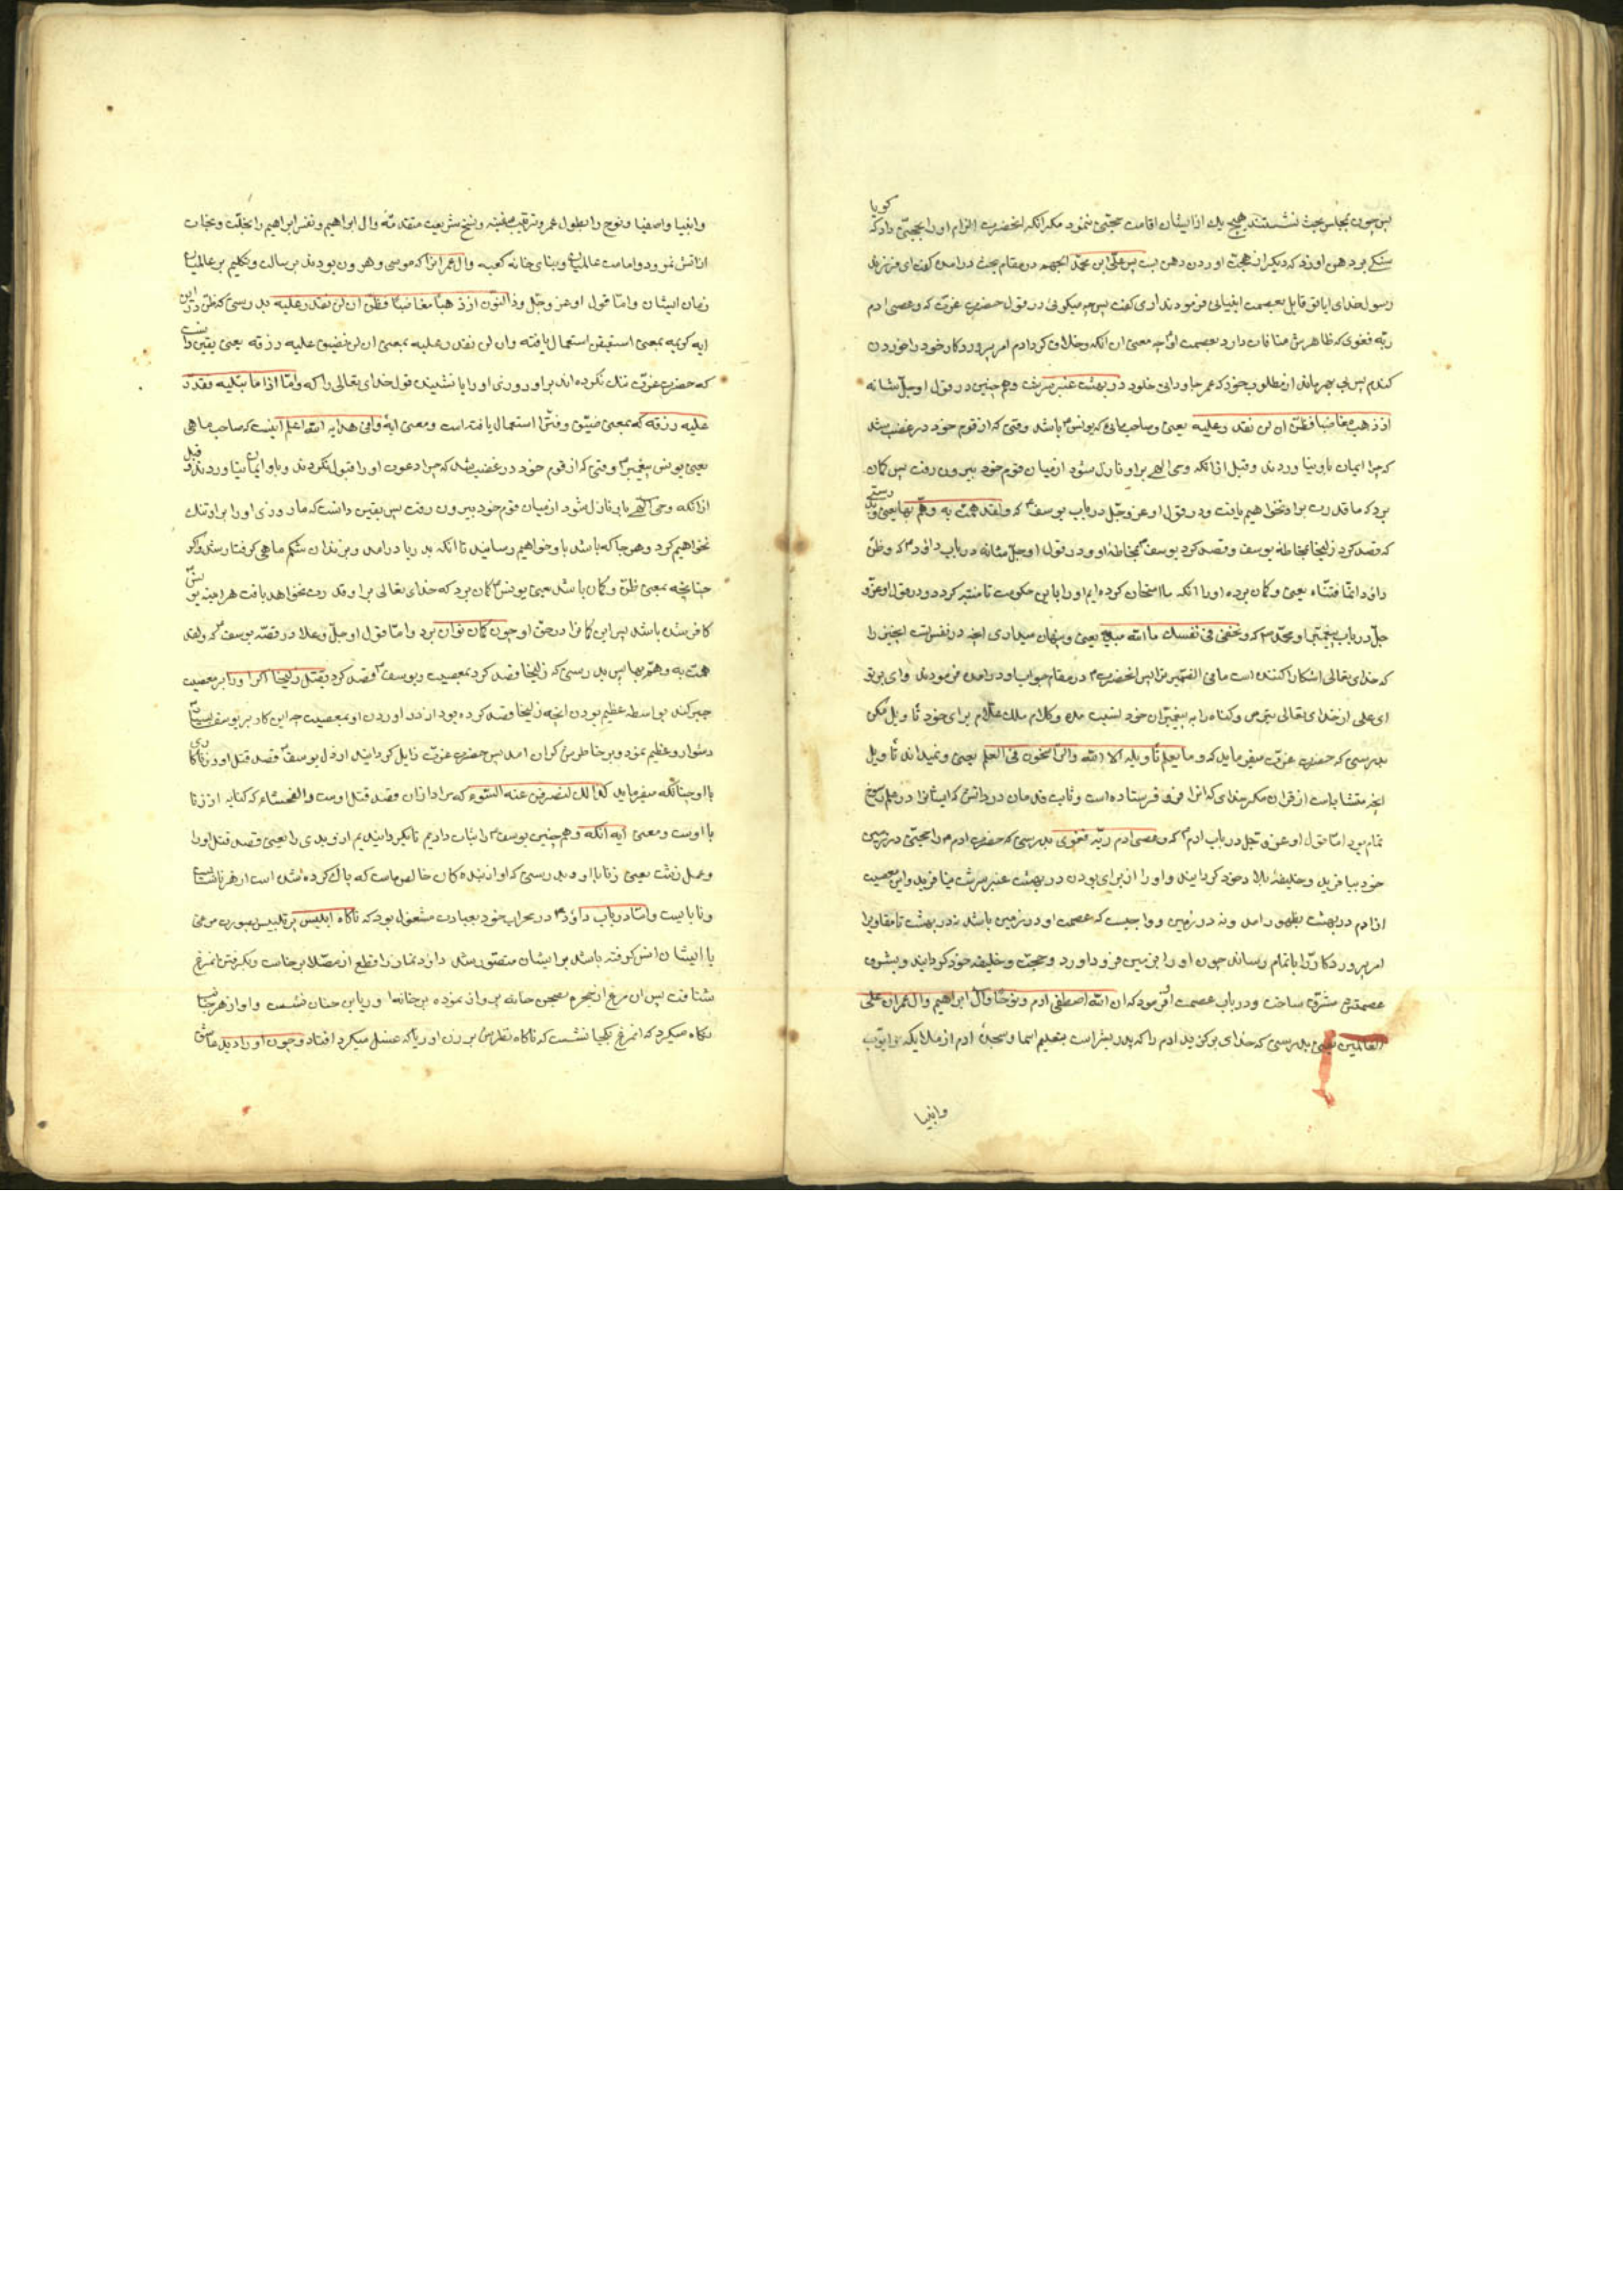 پس چون بمجلس بحث نشستند هیچ یک از ایشان اقامت حجتی ننمود مکر انکه انحضرت الزام او را بحجتی داد که کویا
سنکی بر دهن او زد که دیکر از حجت اوردن دهن بست پس علی ابن محمد الجهم در مقام بحث در امد کفت ای فرزند
رسول خدای ایا تو قایل بعصمت انبیائی فرمودند اری کفت پس چه میکوئی در قول حضرت عزت که وعصی ادم
ربه فغوی که ظاهرش منافات دارد بعصمت او چه معنی ان انکه وخلاف کرد ادم امر پروردکار خود را خوردن
کندم پس بی بهره ماند از مطلوب خود که عمر جاودانی خلود در بهشت عنبر سرشت و همچنین در قول او جل شانه
اذ ذهب مغاضبا فظن ان لن نقدر علیه یعنی وصاحب ماهی که یونس باشد وقتی که از قوم خود در غضب شد
که چرا ایمان باو نیاوردند وقبل از انکه وحی الهی براو نازل شود از میان قوم خود بیرون رفت پس کمان
برد که ما قدرت براو نخواهیم یافت ودر قول او عز وجل در باب یوسف که ولقد همت به وهم بها یعنی وبدرستی
که قصد کرد زلیخا بمخاطه یوسف وقصد کرد یوسف بمخاطه او ودر قول او جل شانه در باب داود که وظن
داود انما فتناه یعنی وکمان برده او را انکه ما امتحان کرده ایم او را باین حکومت تا متنبه کردد ودر قول او عز و
جل در باب پیغمبر او محمد که وتخفی فی نفسک ما الله مبدیه یعنی وپنهان میداری انچه در نفس تست انچیز را
که خدای تعالی اشکارا کننده است ما فی الضمیر ترا پس انحضرت در مقام جواب او در امدند فرمودند وای بر تو
ای علی از خدای تعالی بترس وکناه را به پیغمبران خود نسبت مده وکلام ملک علام برای خود تأویل مکن
بدرستی که حضرت عزت میفرماید که وما یعلم تأویله الا الله والراسخون فی العلم یعنی ونمیداند تأویل
انچه متشابه است از قران مکر خدای که انرا فرو فرستاده است وثابت قدمان در دانش که ایشانرا در علم رسوخ
تمام بود اما قول او عز وجل در باب ادم که وعصی ادم ربه فغوی بدرستی که حضرت ادم را حجتی در زمین
خود بیافرید وخلیفه بلاد خود کردانید واو را از برای بودن در بهشت عنبر سرشت نیافرید واین معصیت
از ادم در بهشت بظهور امد ونه در زمین وواجبست که عصمت او در زمین باشد نه در بهشت تا مقادیر
امر پروردکار را باتمام رساند چون او را بزمین فرود اورد وحجت وخلیفه خود کردانید وبشرف
عصمتش مشرف ساخت ودر باب عصمت او فرمود که ان الله اصطفی ادم ونوحا وال ابراهیم وال عمران علی
العالمین یعنی بدرستی که خدای برکزید ادم را که پدر بشر است بتعلیم اسما وسجده ادم از ملایکه
وانبیا
وانبیا واصفیا ونوح را بطول عمر وترتیب سفینه ونسخ شریعت متقدمه وال ابراهیم ونفس ابراهیم را بخلت ونجات
از اتش نمرود وامامت عالمیان وبنای خانه کعبه وال عمرانرا که موسی وهرون بودند برسالت وتکلیم بر عالمیان
زمان ایشان واما قول او عز وجل وذا النون اذ ذهب مغاضبا فظن ان لن نقدر علیه بدرستی که ظن در این
ایه کریمه بمعنی استیقن استعمال یافته وان لن نقدر علیه بمعنی ان لن نضیق علیه رزقه یعنی یقین دانست
که حضرت عزت تنک نکرده اند براو روزی او را یا نشنیدی قول خدای تعالی را که واما اذا ما ابتلیه فقدر
علیه رزقه که بمعنی ضیق وقتر استعمال یافته است ومعنی ایه وافی هدایه الله اعلم اینست که صاحب ماهی
یعنی یونس پیغمبر وقتی که از قوم خود در غضب شد که چرا دعوت او را قبول نکردند وباو ایمان نیاوردند وقبل
از انکه وحی الهی باو نازل شود از میان قوم خود بیرون رفت پس یقین دانست که ما روزی او را براو تنک
نخواهیم کرد وهر جا که باشد باو خواهیم رسانید تا انکه بدریا درامد وبزندان شکم ماهی کرفتار شد واکر
چنانچه بمعنی ظن وکمان باشد یعنی یونس کمان برد که خدای تعالی براو قدرت نخواهد یافت هر اینه یونس
کافر شده باشد پس این کافرا در حق او چون کمان توان برد واما قول او جل وعلا در قصه یوسف که ولقد
همت به وهم بها پس بدرستی که زلیخا قصد کرد بمعصیت ویوسف قصد کرد بقتل زلیخا اکر او را بر معصیت
جبر کند بواسطه عظیم بودن انچه زلیخا قصد کرده بود از در اوردن او بمعصیت چه این کار بر یوسف بسیار
دشوار وعظیم نمود وبر خاطرش کران امد پس حضرت عزت زایل کردانید از دل یوسف قصد قتل او وزناکاری
با او چنانکه میفرماید کذلک لنصرف عنه السوء که مراد از ان قصد قتل اوست والفحشاء که کنایه از زنا
با اوست ومعنی ایه انکه وهمچنین یوسف را ثبات دادیم تا بکردانیدیم از او بدی را یعنی قصد قتل او را
وعمل زشت یعنی زنا با او بدرستی که او از بنده کان خالص ماست که پاک کرده شده است از هر ناشایست
ونابایست واما در باب داود در محراب خود بعبادت مشغول بود که ناکاه ابلیس پر تلبیس بصورت مرغی
با ایشان انس کرفته باشد بر ایشان متصور شد داود نماز را قطع از مصلا برخاست وبکرفتن انمرغ
شتافت پس ان مرغ از حجره بصحن خانه پرواز نموده بر خانه اوریا بن حنان نشست واو از هر جانب
نکاه میکرد که انمرغ بکجا نشست که ناکاه نظرش بر زن اوریا که غسل میکرد افتاد وچون او را دید عاشق